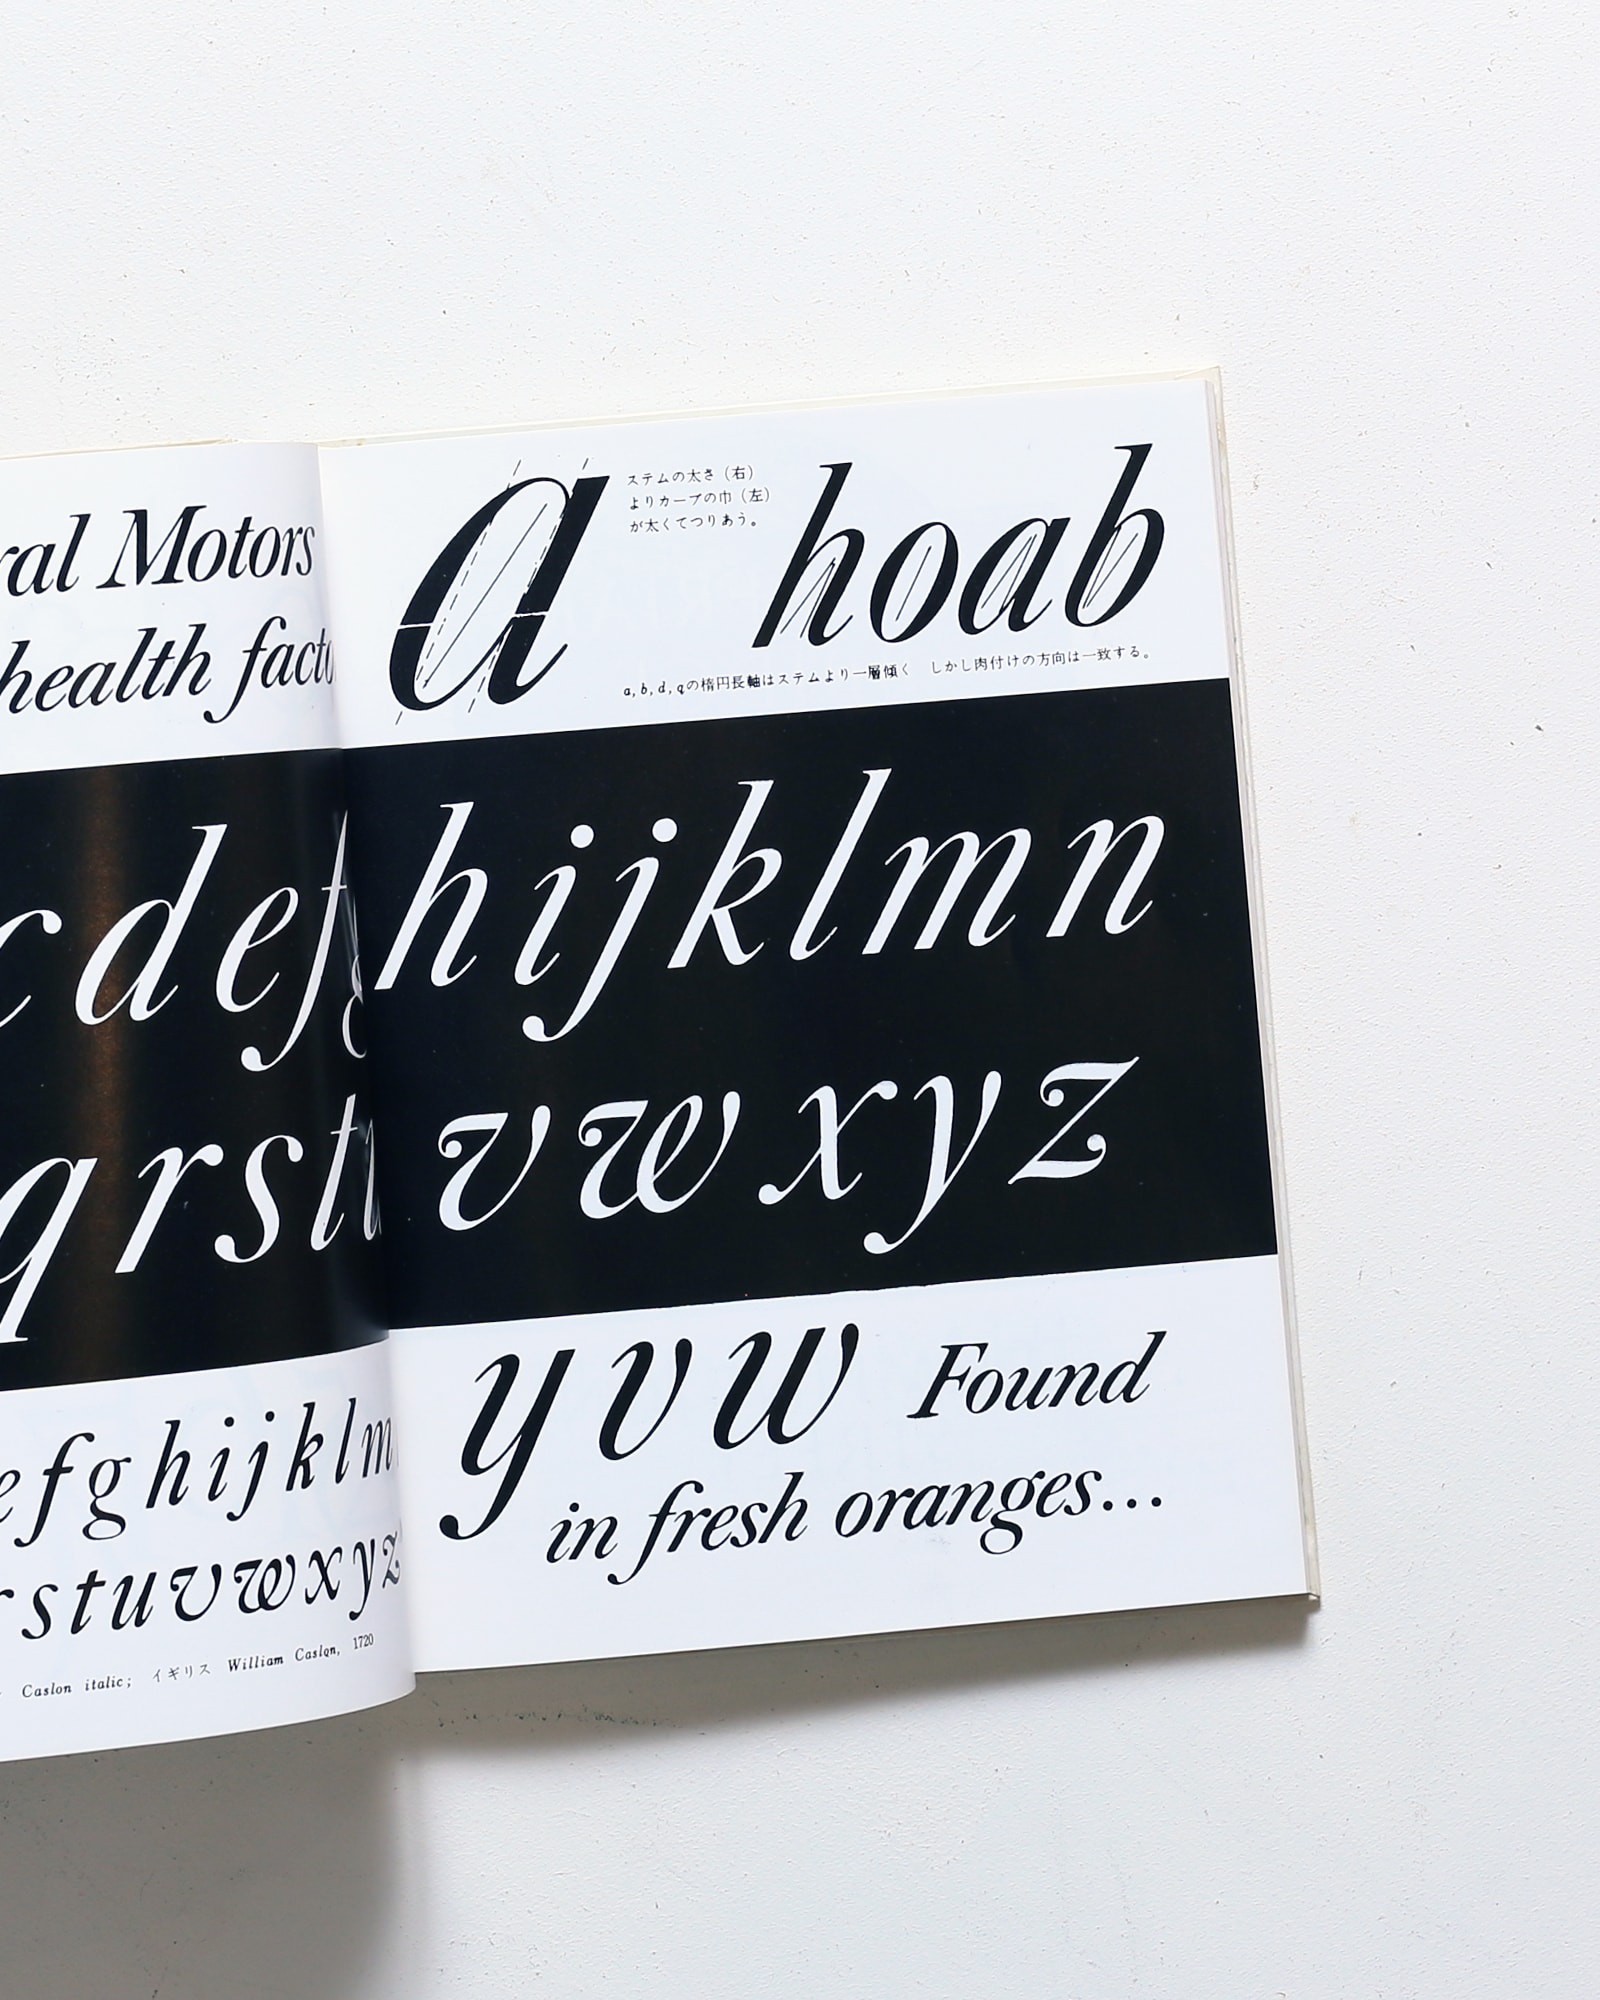 ral Motors
health facto
c d e f g
q r s t u
e f g h i j k l m
r s t u v w x y z
Caslon italic; イギリス William Caslon, 1720
a
ステムの太さ（右）
よりカーブの巾（左）
が太くてつりあう。
hoab
a, b, d, qの楕円長軸はステムより一層傾く　しかし肉付けの方向は一致する。
h i j k l m n
v w x y z
y v w Found
in fresh oranges...